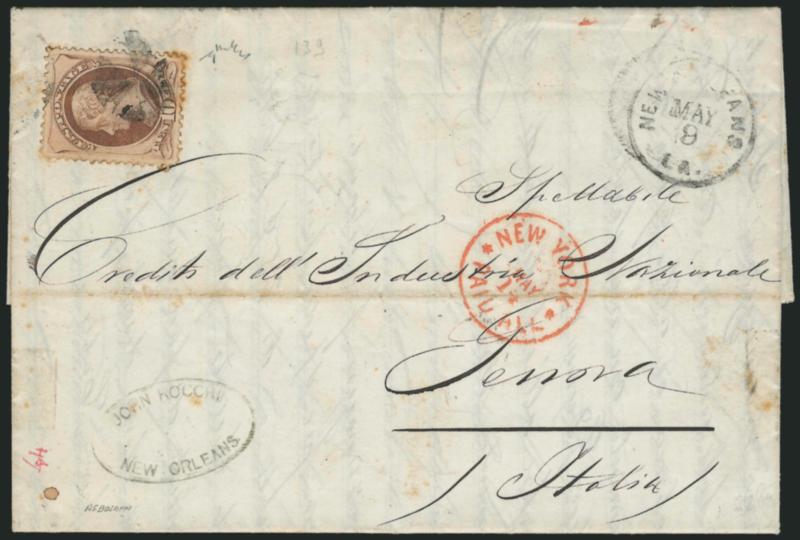 139
U.S. POSTAGE
NEW ORLEANS
MAY
9
LA.
Spettabile
Credito dell' Industria Nazionale
NEW YORK
MAY
PAID ALL
Genova
Italia
JOHN ROCCHI
NEW ORLEANS